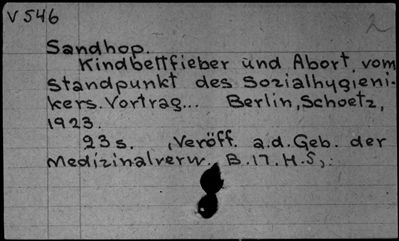 V 546
2
Sandhop.
Kindbettfieber und Abort, vom
Standpunkt des Sozialhygieni-
kers. Vortrag... Berlin, Schoetz,
1923.
23 s. (Veröff. a.d. Geb. der
Medizinalverw. B.17.H.5).